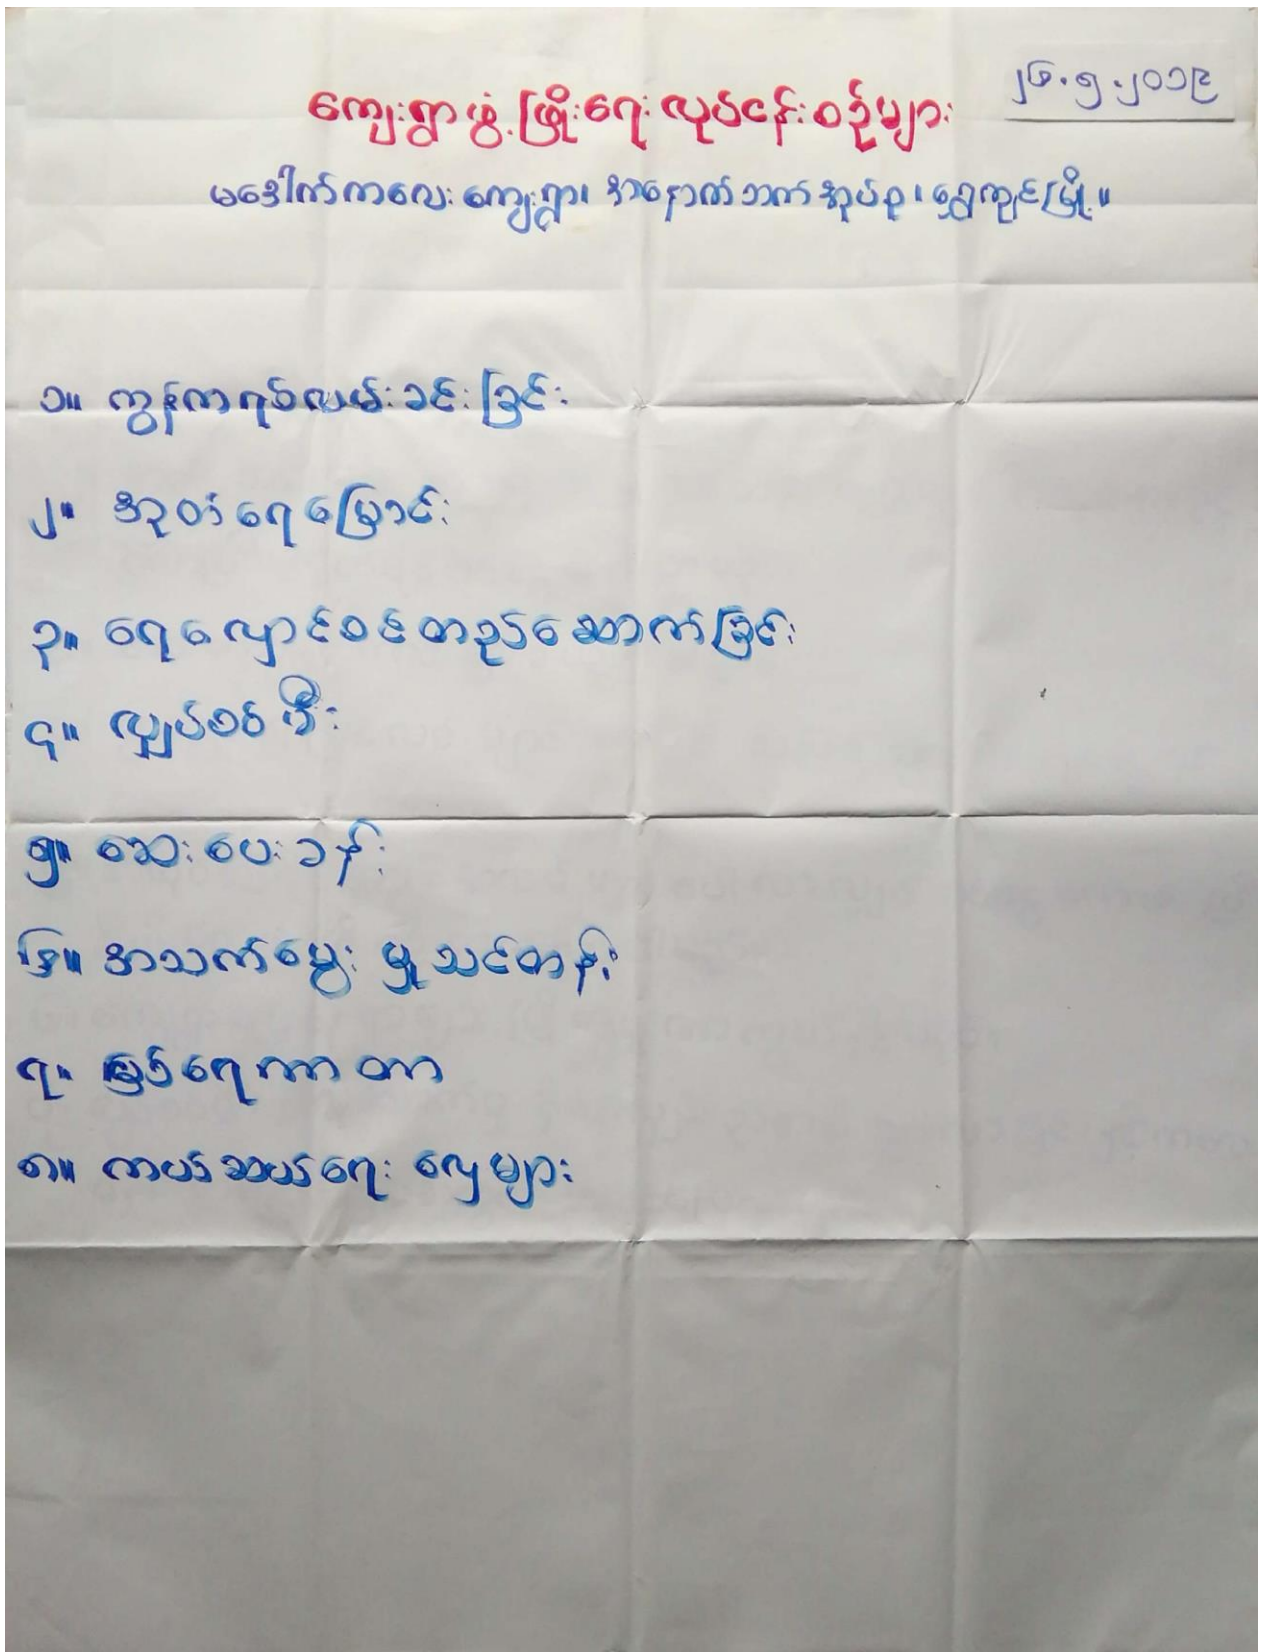 ၂၆.၅.၂၀၁၉
ကျေးရွာဖွံ့ဖြိုးရေးလုပ်ငန်းစဉ်များ
မဒေါက်ကလေးကျေးရွာ၊ အနောက်ဘက်အုပ်စု၊ ရွှေကျင်မြို့။
၁။ ကွန်ကရစ်လမ်းခင်းခြင်း
၂။ အုတ်ရေမြောင်း
၃။ ရေလှောင်စင်တည်ဆောက်ခြင်း
၄။ လျှပ်စစ်မီး
၅။ ဆေးပေးခန်း
၆။ အသက်မွေးမှုသင်တန်း
၇။ မြစ်ရေကာတာ
၈။ ကယ်ဆယ်ရေး လှေများ